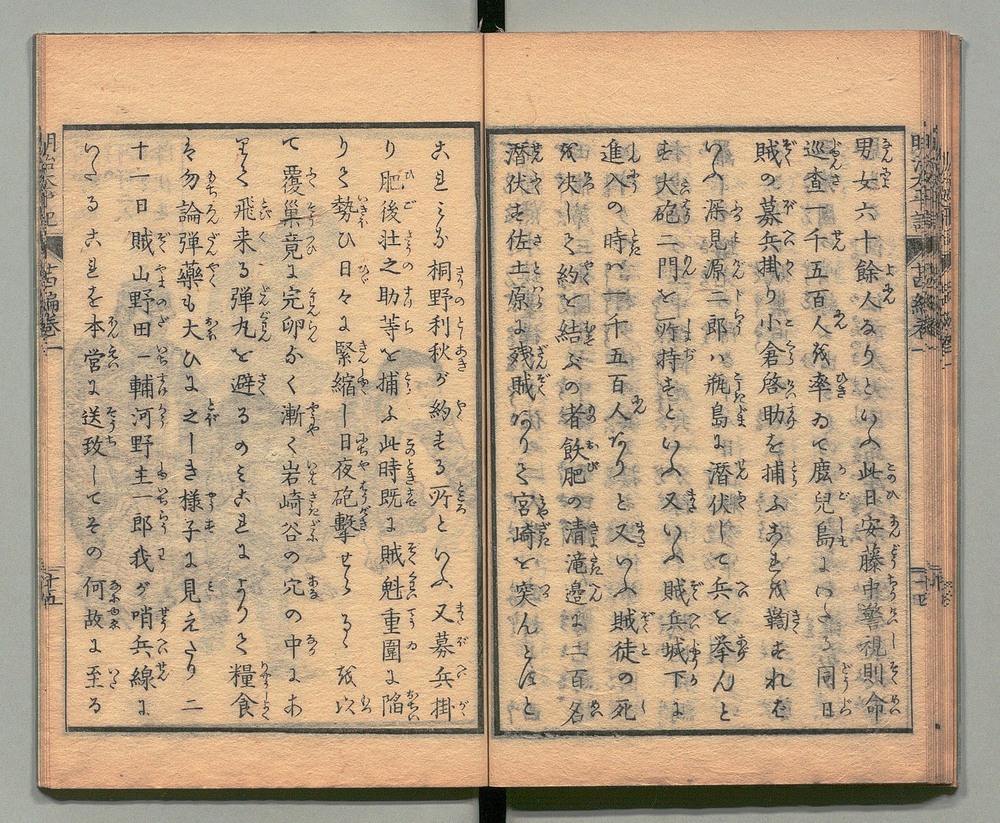 男女六十餘人なりといふ此日安藤中警視則命
巡査一千五百人を率ゐて鹿児島にいたる同日
賊の募兵掛り小倉啓助を捕ふこれを鞫すれを
いふ深見源二郎ハ瓶島に潜伏して兵を挙んと
す大砲二門を所持すといふ又いふ賊兵城下に
進入の時ハ一千五百人なりと又いふ賊徒の死
を决して約を結ぶの者飫肥の清滝邉に二百名
潜伏す佐土原に残賊ありて宮崎を突んとほと
これミな桐野利秋が約する所といふ又募兵掛
り肥後壮之助等を捕ふ此時既に賊魁重圍に陥
りて勢ひ日々に緊縮し日夜砲撃せらるゝを以
て覆巣竟に完卵なく漸く岩崎谷の穴の中にあ
りて飛来る弾丸を避るのミこれによりて糧食
は勿論弾藥も大ひに乏しき様子に見えたり二
十一日賊山野田一輔河野圭一郎我が哨兵線に
いたるこれを本営に送致してその何故に至る